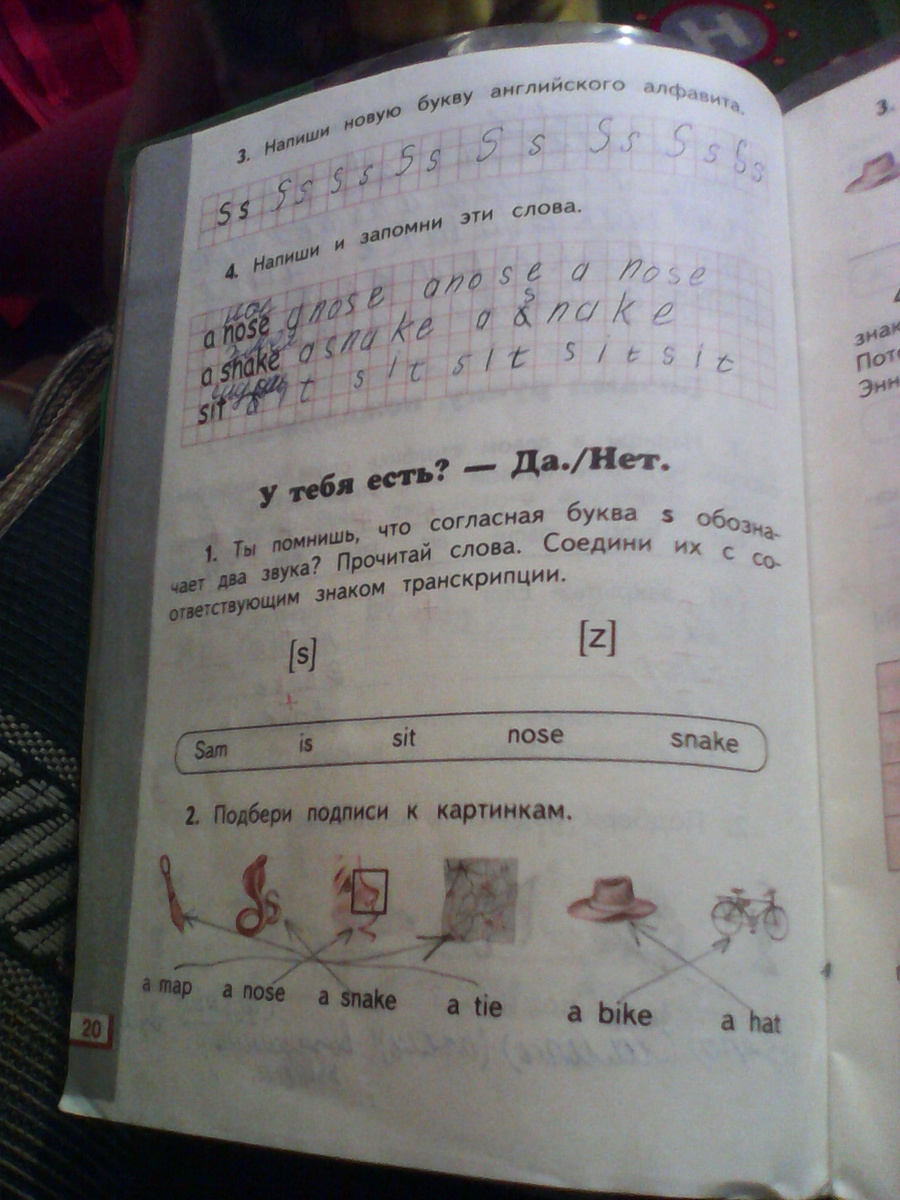 3. Напиши новую букву английского алфавита.
Ss Ss Ss Ss S s Ss S s Ss
4. Напиши и запомни эти слова.
нос
a nose a nose a nose a nose
s
a snake a snake a snake
sit sit sit sit sit sit
У тебя есть? — Да./Нет.
1. Ты помнишь, что согласная буква s обозна-
чает два звука? Прочитай слова. Соедини их с со-
ответствующим знаком транскрипции.
[s] [z]
Sam is sit nose snake
2. Подбери подписи к картинкам.
a map a nose a snake a tie a bike a hat
20
3.
знак
Пото
Энни